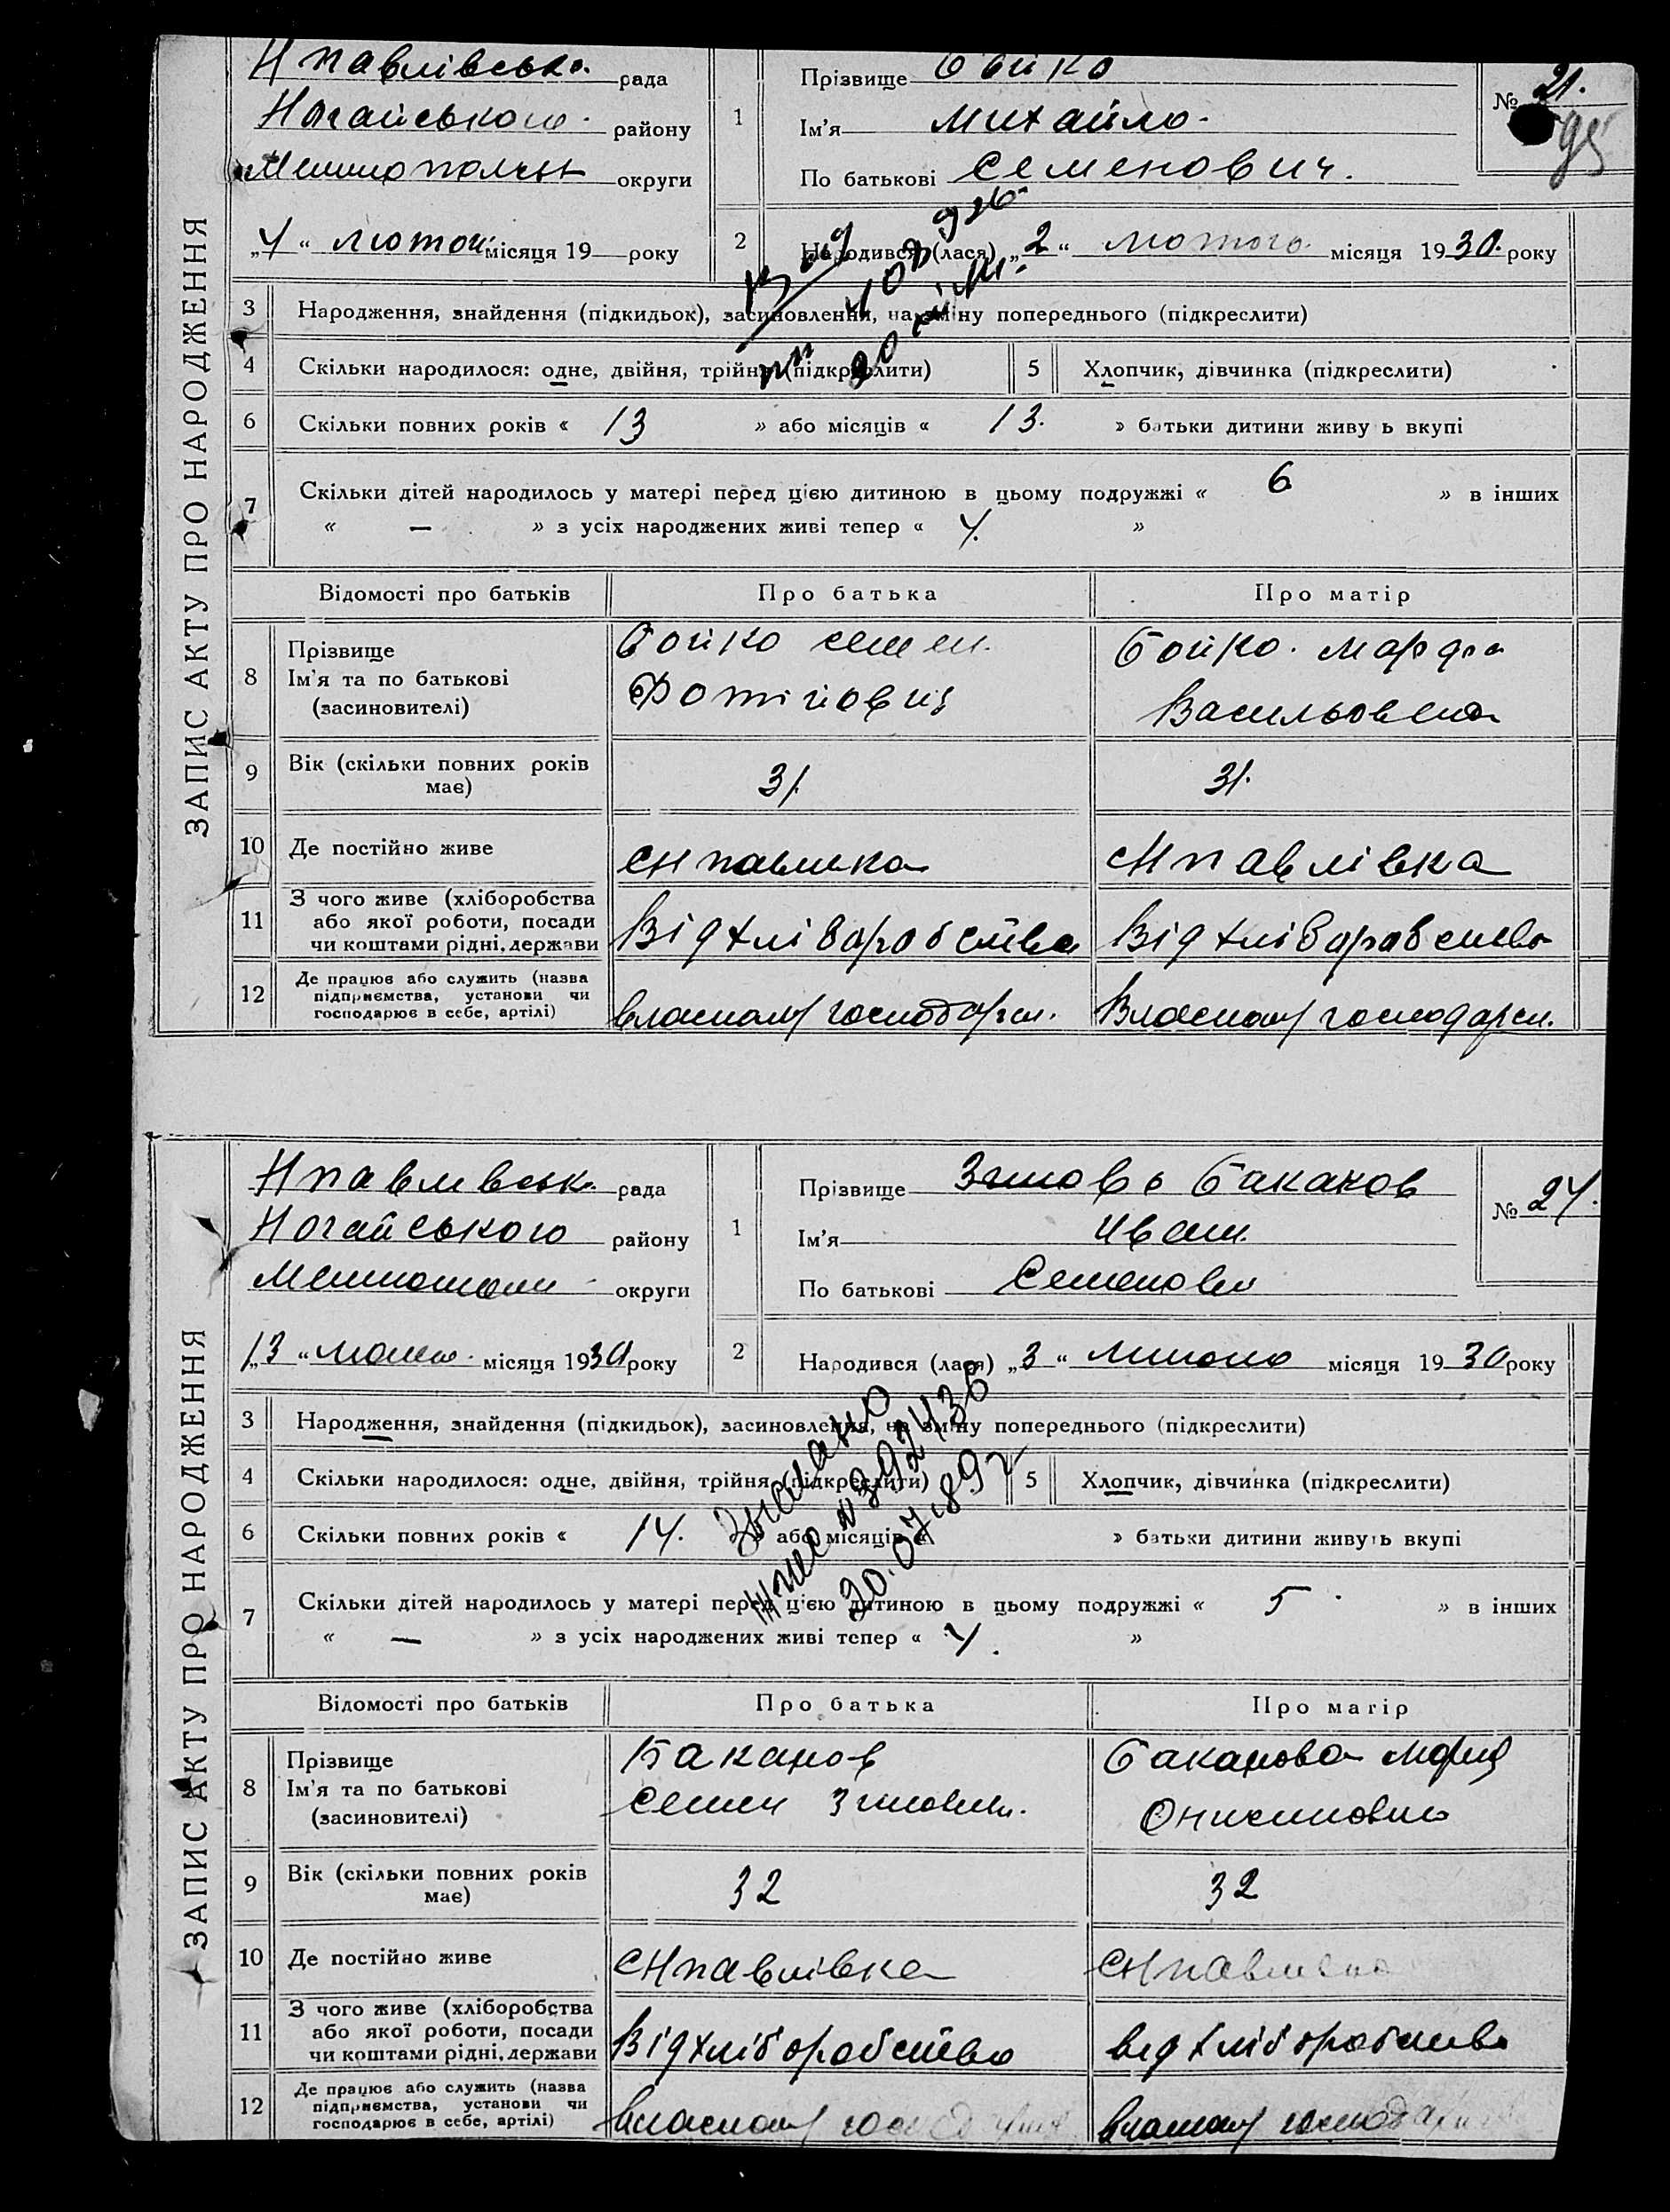 ЗАПИС АКТУ ПРО НАРОДЖЕННЯ
Нпавлівська рада
Ногайського району
округи
„4“ місяця 19— року
1 Прізвище Бойко
Ім'я Михайло
По батькові Семенович.
№ 21.
95
2 Народився (лася) „2“ лютого місяця 1930 року
3 Народження, знайдення (підкидьок), засиновлення, на зміну попереднього (підкреслити)
4 Скільки народилося: одне, двійня, трійня (підкреслити) 5 Хлопчик, дівчинка (підкреслити)
6 Скільки повних років « 13 » або місяців « 13. » батьки дитини живуть вкупі
7 Скільки дітей народилось у матері перед цією дитиною в цьому подружжі « 6 » в інших
« — » з усіх народжених живі тепер « 4. »
Відомості про батьків Про батька Про матір
8 Прізвище Ім'я та по батькові (засиновителі)
Бойко Семен Фотійович
Бойко. Марфа Васильовна
9 Вік (скільки повних років має) 31. 31.
10 Де постійно живе с Нпавлівка с Нпавлівка
11 З чого живе (хліборобства або якої роботи, посади чи коштами рідні, держави
Від хліборобства Від хліборобства
12 Де працює або служить (назва підприємства, установи чи господарює в себе, артілі)
власному господарст. Власному господарст.
ЗАПИС АКТУ ПРО НАРОДЖЕННЯ
Нпавлівськ. рада
Ногайського району
округи
„13“ лютого місяця 1930 року
1 Прізвище Баканов
Ім'я Иван
По батькові Семенович
№ 24.
2 Народився (лася) „3“ лютого місяця 1930 року
3 Народження, знайдення (підкидьок), засиновлення, на зміну попереднього (підкреслити)
4 Скільки народилося: одне, двійня, трійня (підкреслити) 5 Хлопчик, дівчинка (підкреслити)
6 Скільки повних років « 14. » або місяців « » батьки дитини живуть вкупі
20.07.89г
7 Скільки дітей народилось у матері перед цією дитиною в цьому подружжі « 5 » в інших
« — » з усіх народжених живі тепер « 4. »
Відомості про батьків Про батька Про матір
8 Прізвище Ім'я та по батькові (засиновителі)
Баканов Семен
Баканова Онисимовна
9 Вік (скільки повних років має) 32 32
10 Де постійно живе с Нпавлівка с Нпавлівка
11 З чого живе (хліборобства або якої роботи, посади чи коштами рідні, держави
Від хліборобства від хліборобства
12 Де працює або служить (назва підприємства, установи чи господарює в себе, артілі)
власному власному